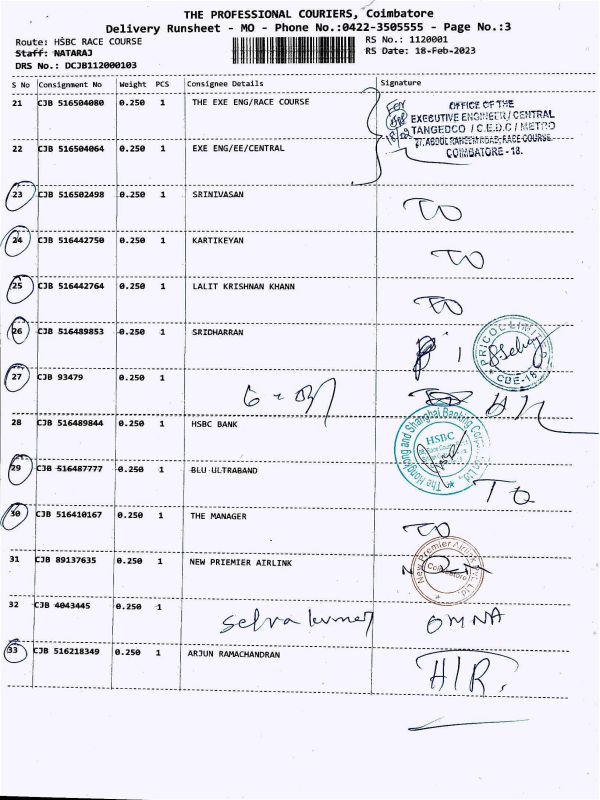 THE PROFESSIONAL COURIERS, Coimbatore
Delivery Runsheet - MO - Phone No.:0422-3505555 - Page No.:3
Route: HSBC RACE COURSE
Staff: NATARAJ
DRS No.: DCJB112000103
RS No.: 1120001
RS Date: 18-Feb-2023
S No Consignment No Weight PCS Consignee Details Signature
21 CJB 516504080 0.250 1 THE EXE ENG/RACE COURSE
OFFICE OF THE
EXECUTIVE ENGINEER / CENTRAL
TANGEDCO / C.E.D.C / METRO
27, ABDUL RAHEEM ROAD, RACE COURSE
COIMBATORE - 18.
22 CJB 516504064 0.250 1 EXE ENG/EE/CENTRAL
23 CJB 516502498 0.250 1 SRINIVASAN
24 CJB 516442750 0.250 1 KARTIKEYAN
25 CJB 516442764 0.250 1 LALIT KRISHNAN KHANN
26 CJB 516489853 0.250 1 SRIDHARRAN
PRICOL LIMITED
CBE-18
27 CJB 93479 0.250 1
28 CJB 516489844 0.250 1 HSBC BANK
The Hongkong and Shanghai Banking
HSBC
29 CJB 516487777 0.250 1 BLU ULTRABAND
30 CJB 516410167 0.250 1 THE MANAGER
31 CJB 89137635 0.250 1 NEW PRIEMIER AIRLINK
New Premier Airlink
Coimbatore
32 CJB 4043445 0.250 1 Selva kumar
33 CJB 516218349 0.250 1 ARJUN RAMACHANDRAN